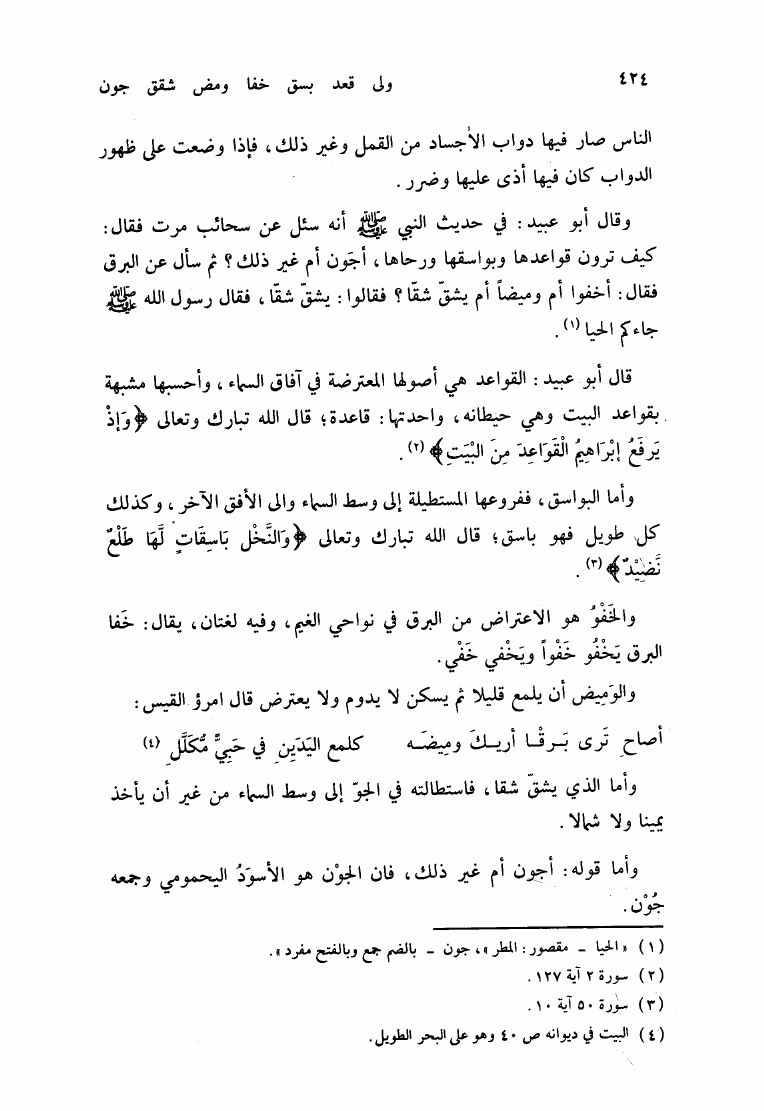 ٤٢٤
ولى قعد بسق خفا ومض شقق جون
الناس صار فيها دواب الأجساد من القمل وغير ذلك، فإذا وضعت على ظهور
الدواب كان فيها أذى عليها وضرر.
وقال أبو عبيد: في حديث النبي ﷺ أنه سئل عن سحائب مرت فقال:
كيف ترون قواعدها وبواسقها ورحاها، أجَون أم غير ذلك؟ ثم سأل عن البرق
فقال: أخفوا أم وميضاً أم يشقّ شقّا؟ فقالوا: يشقّ شقّا، فقال رسول الله ﷺ
جاءكم الحيا (١).
قال أبو عبيد: القواعد هي أصولها المعترضة في آفاق السماء، وأحسبها مشبهة
بقواعد البيت وهي حيطانه، واحدتها: قاعدة؛ قال الله تبارك وتعالى ﴿وَإِذْ
يَرفَعُ إبْرَاهِيمُ الْقَوَاعِدَ مِنَ الْبَيَتِ﴾ (٢).
وأما البواسق، ففروعها المستطيلة إلى وسط السماء والى الأفق الآخر، وكذلك
كل طويل فهو باسق؛ قال الله تبارك وتعالى ﴿وَالنَّخْل بَاسِقَاتٍ لَّهَا طَلْعٌ
نَّضِيْدٌ﴾ (٣).
والخَفْوُ هو الاعتراض من البرق في نواحي الغيم، وفيه لغتان، يقال: خَفا
البرق يَخْفُو خَفْواً ويَخْفي خَفْي.
والوَمِيض أن يلمع قليلا ثم يسكن لا يدوم ولا يعترض قال امرؤ القيس:
أصاحِ تَرى بَرقْا أريكَ ومِيضَه كلمع اليَدَينِ في حَبِيٍّ مُّكَلَّلِ (٤)
وأما الذي يشقّ شقا، فاستطالته في الجوّ إلى وسط السماء من غير أن يأخذ
يمينا ولا شمالا.
وأما قوله: أجون أم غير ذلك، فان الجوْن هو الأسوَدُ اليحمومي وجمعه
جُوْن.
(١) «الحيا - مقصور: المطر»، جون - بالضم جمع وبالفتح مفرد».
(٢) سورة ٢ آية ١٢٧.
(٣) سورة ٥٠ آية ١٠.
(٤) البيت في ديوانه ص ٤٠ وهو على البحر الطويل.